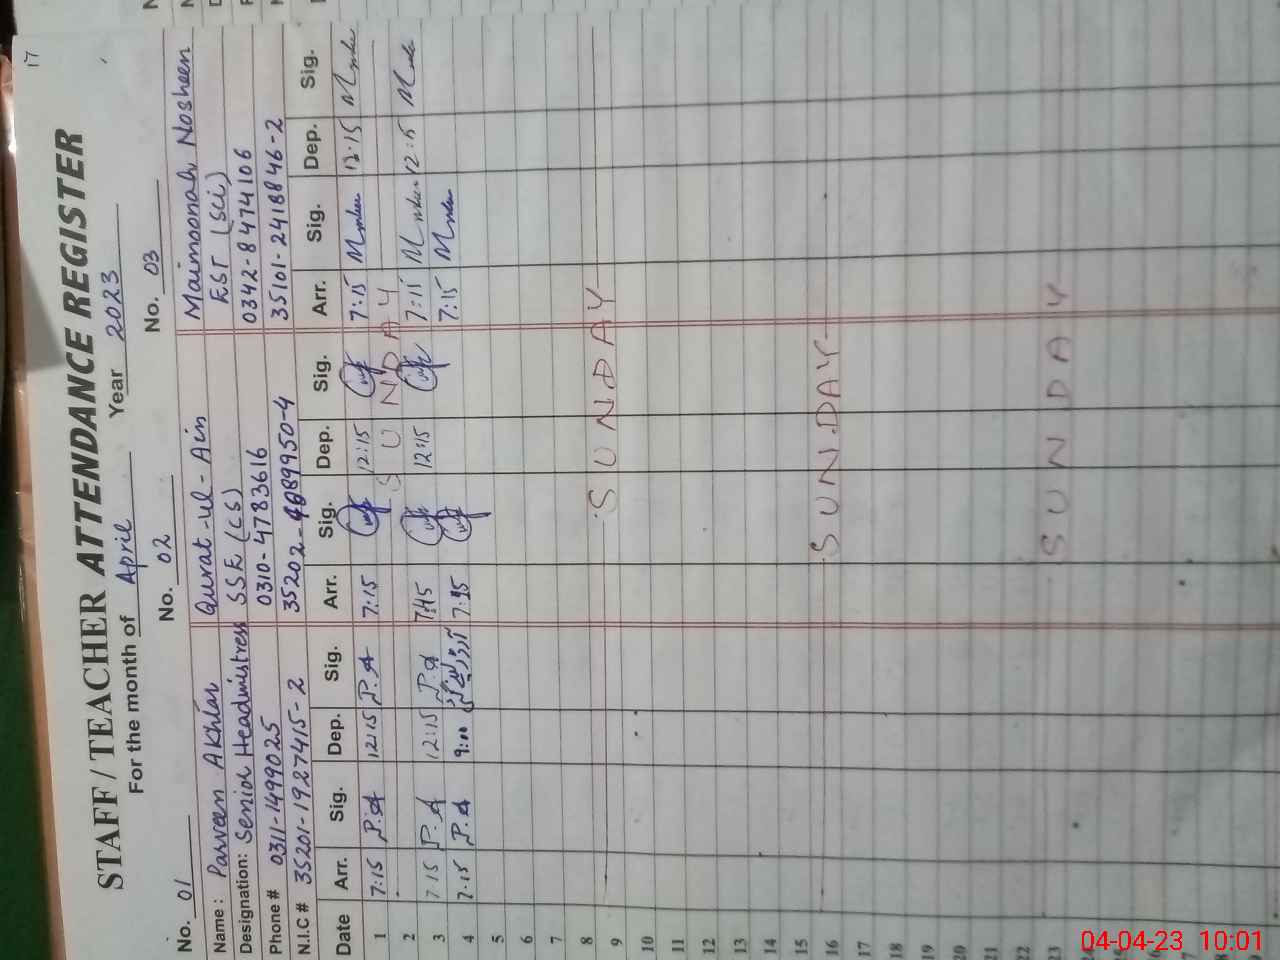 17
STAFF / TEACHER ATTENDANCE REGISTER
For the month of April Year 2023
No. 01 No. 02 No. 03
Name: Parveen Akhtar Qurat-ul-Ain Maimoonah Nosheen
Designation: Senior Headmistress SSE (CS) EST (Sci)
Phone # 0311-1499025 0310-4783616 0342-8474106
N.I.C # 35201-1927415-2 35202-4889950-4 35101-2418846-2
Date Arr. Sig. Dep. Sig. Arr. Sig. Dep. Sig. Arr. Sig. Dep. Sig.
1 7:15 P.A 12:15 P.A 7:15 12:15 7:15 12:15
2 SUNDAY
3 7 15 P.A 12:15 P.A 7:45 12:15 7:15 12:15
4 7.15 P.A 9:00 7:15
5
6
7
8
9 SUNDAY
10
11
12
13
14
15
16 SUNDAY
17
18
19
20
21
22
23 SUNDAY
04-04-23 10:01